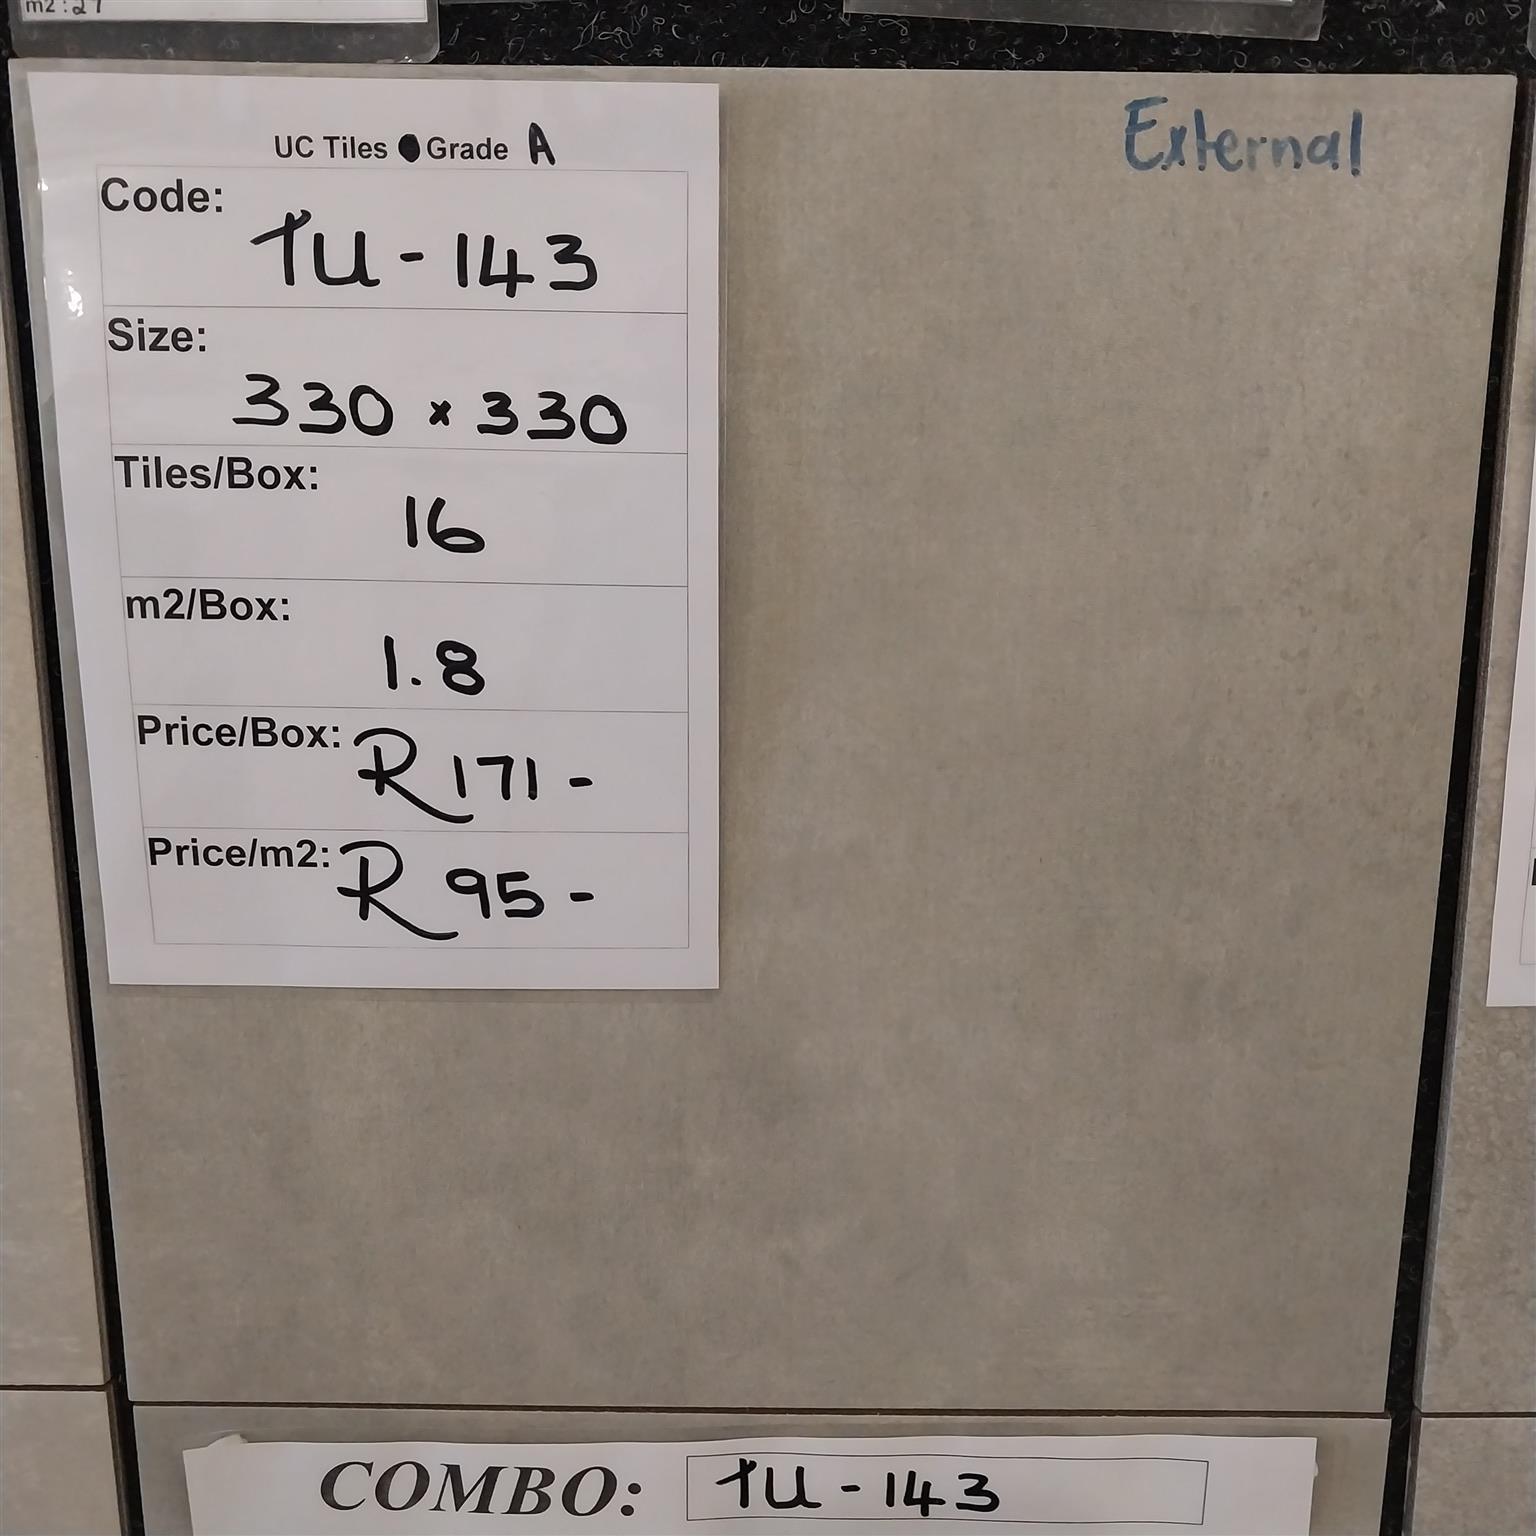 m2 : 27
UC Tiles ● Grade A
External
Code:
TU - 143
Size:
330 x 330
Tiles/Box:
16
m2/Box:
1.8
Price/Box: R171 -
Price/m2: R 95 -
COMBO: TU - 143